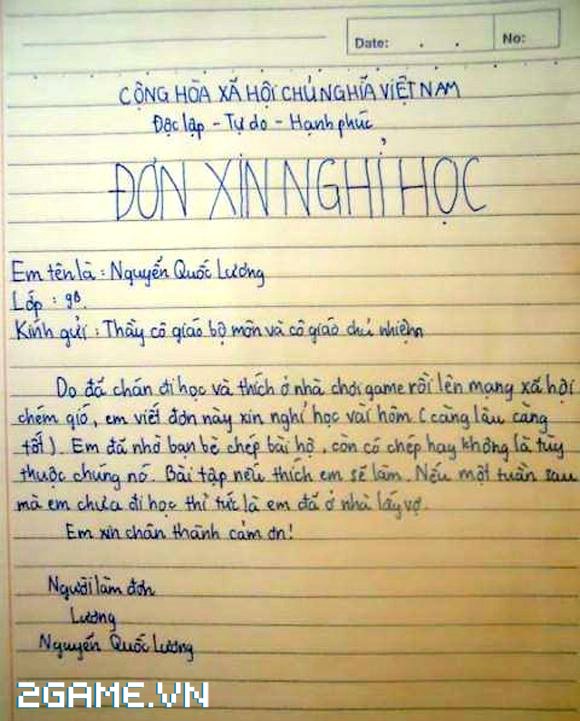 Date: . .
No:
CỘNG HÒA XÃ HỘI CHỦ NGHĨA VIỆT NAM
Độc lập - Tự do - Hạnh phúc
ĐƠN XIN NGHỈ HỌC
Em tên là : Nguyễn Quốc Lương
Lớp : 9B.
Kính gửi : Thầy cô giáo bộ môn và cô giáo chủ nhiệm
Do đã chán đi học và thích ở nhà chơi game rồi lên mạng xã hội
chém gió, em viết đơn này xin nghỉ học vài hôm ( càng lâu càng
tốt ). Em đã nhờ bạn bè chép bài hộ, còn có chép hay không là tùy
thuộc chúng nó. Bài tập nếu thích em sẽ làm. Nếu một tuần sau
mà em chưa đi học thì tức là em đã ở nhà lấy vợ.
Em xin chân thành cảm ơn!
Người làm đơn
Lương
Nguyễn Quốc Lương
2GAME.VN